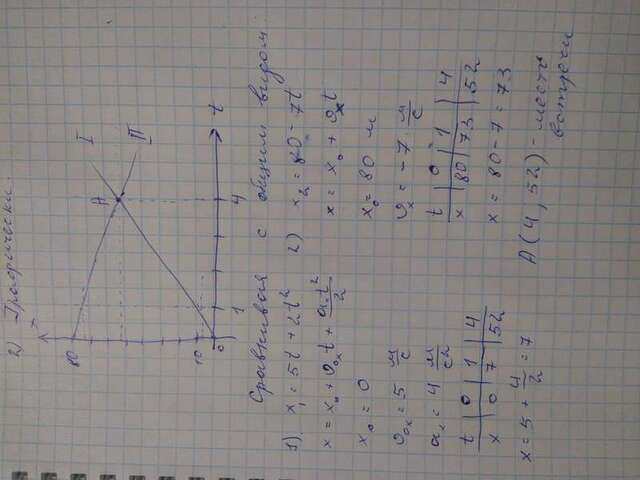 2) Графически.
x
80
A
I
II
10
0
1
4
t
Сравнивая с общим видом
1) x₁ = 5t + 2t²
x = x₀ + v₀ₓt + aₓt²/2
x₀ = 0
v₀ₓ = 5 м/с
aₓ = 4 м/с²
t | 0 | 1 | 4
x | 0 | 7 | 52
x = 5 + 4/2 = 7
2) x₂ = 80 - 7t
x = x₀ + vₓt
x₀ = 80 м
vₓ = -7 м/с
t | 0 | 1 | 4
x | 80 | 73 | 52
x = 80 - 7 = 73
A(4, 52) - место
встречи